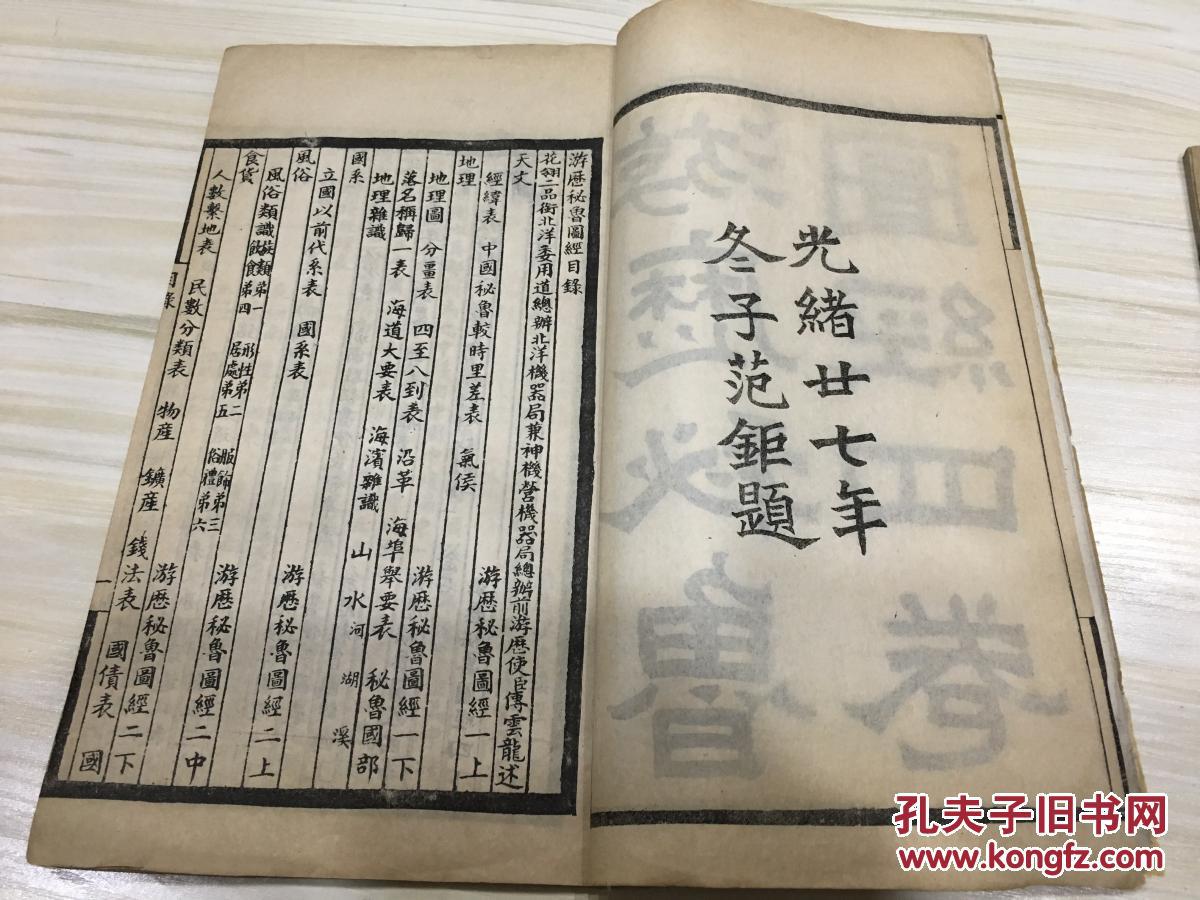 光緒廿七年
冬子范鉅題
游歷秘魯圖經目錄
花翎二品銜北洋委用道總辦北洋機器局兼神機營機器局總辦前游歷使臣傅雲龍述
天文 游歷秘魯圖經一上
經緯表 中國秘魯較時里差表 氣候
地理 游歷秘魯圖經一下
地理圖 分畺表 四至八到表 沿革 海埠舉要表 秘魯國部
落名稱歸一表 海道大要表 海濱雜識 山 水 河 湖 溪
地理雜識
國系 游歷秘魯圖經二上
立國以前代系表 國系表
風俗 游歷秘魯圖經二中
風俗類識 族類弟一 形性弟二 服飾弟三 飲食弟四 居處弟五 俗禮弟六
食貨 游歷秘魯圖經二下
人數繫地表 民數分類表 物產 鑛產 錢法表 國債表 國
目錄 一
圖經四卷
游歷秘魯
孔夫子旧书网
www.kongfz.com